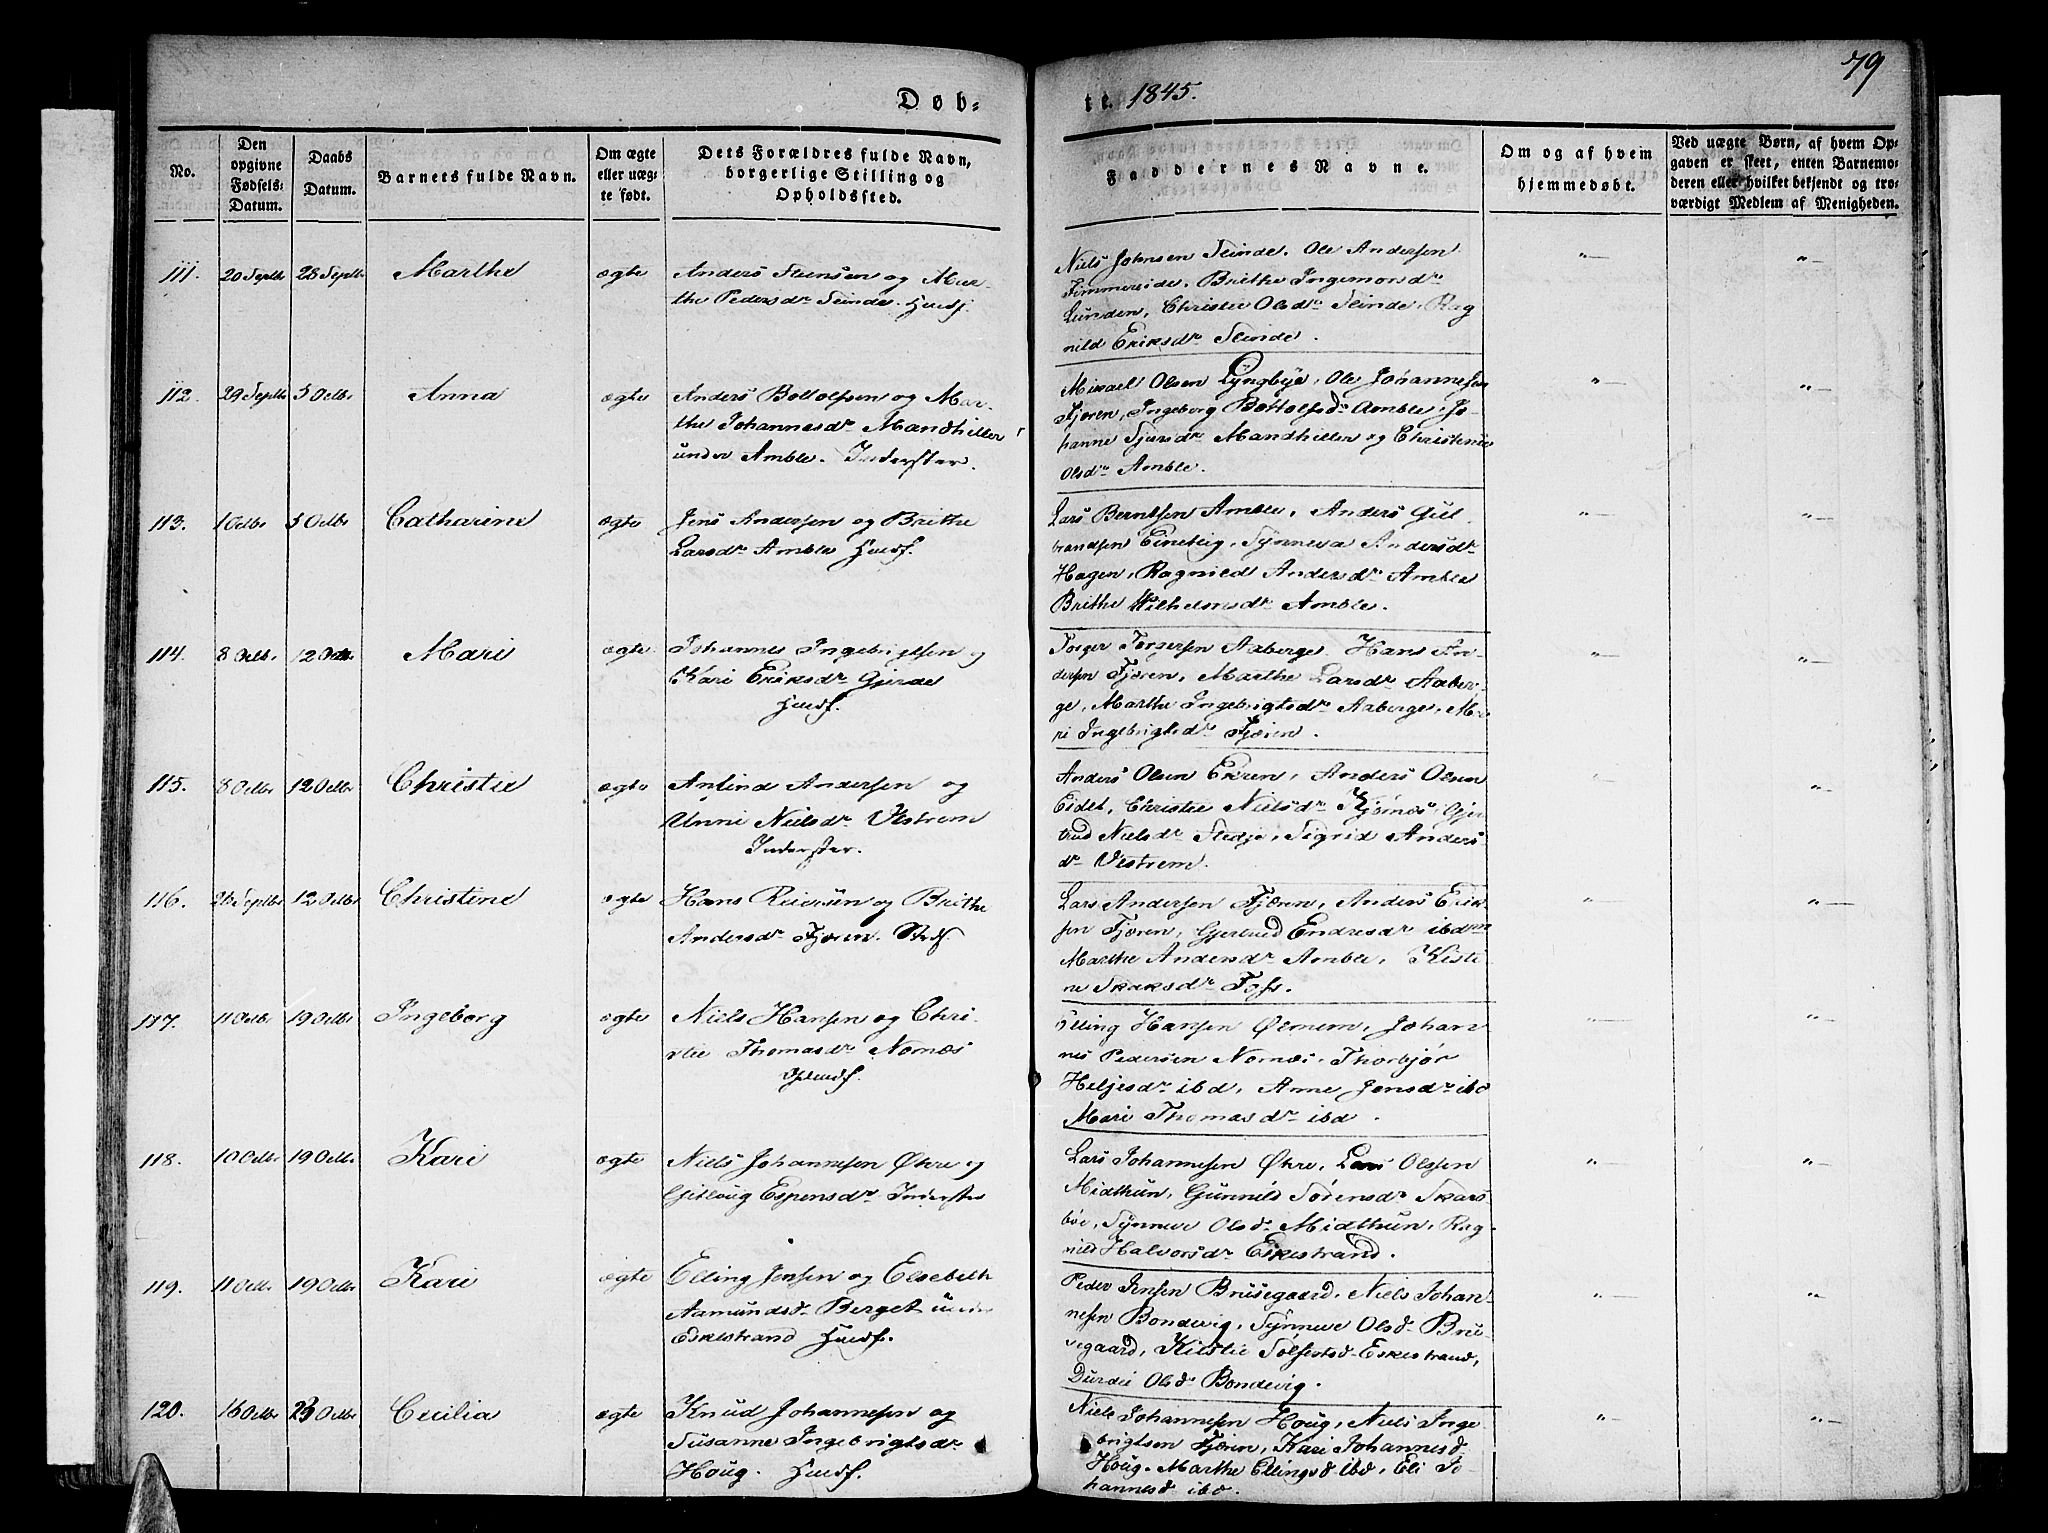 79
Døb=
te. 1845.
No.
Den opgivne Fødsels-Datum.
Daabs Datum.
Barnets fulde Navn.
Om ægte eller uæg-te født.
Dets Forældres fulde Navn, borgerlige Stilling og Opholdssted.
Faddernes Navne.
Om og af hvem hjemmedøbt.
Ved uægte Børn, af hvem Op-gaven er skeet, enten Barnemo-deren eller hvilket bekjendt og tro-værdigt Medlem af Menigheden.
111. 20 Septbr 28 Septbr Marthe ægte
Anders Steensen og Mar-
the Pedersdr Slinde. Huusf.
Niels Johnsen Slinde. Ole Andersen
Fimmereide. Brithe Ingemorsdr
Lunden, Christie Olsdr Slinde. Rag
nild Eriksdr Slinde.
112. 29 Septbr 5 Octbr Anna ægte
Anders Bottolfsen og Mar-
the Johannesdr Mandhiller
under Amble. Inderster.
Mikael Olsen Lyngbye, Ole Johannesen
Fjæren, Ingeborg Bottolfsdr Amble. Jo-
hanne Sjursdr Mandhiller og Christense
Olsdr Amble.
113. 1 Octbr 5 Octbr Catharine ægte
Jens Andersen og Brithe
Larsdr Amble Huusf.
Lars Berntsen Amble, Anders Gul
brandsen Eineteig, Synneva Andersdr
Hagen, Ragnild Andersdr Amble
Brithe Wilhelmsdr Amble.
114. 8 Octbr. 12 Octbr Mari ægte.
Johannes Ingebrigtsen og
Kari Eriksdr Gjerde
Huusf.
Torger Torgersen Aaberge. Hans An-
dersen Fjæren, Marthe Larsdr Aaber-
ge, Marthe Ingebrigtsdr Aaberge, Ma
ri Ingebrigtsdr Fjæren.
115. 8 Octbr 12 Octbr Christie ægte
Anfind Andersen og
Unni Nielsdr Vestrem
Inderster.
Anders Olsen Ekren, Anders Olsen
Eidet, Christie Nielsdr Kjørnæs, Gjer
trud Nielsdr Stedje, Sigrid Anders
dr Vestrem.
116. 26 Septbr 12 Octbr Christine ægte
Hans Reiersen og Brithe
Andersdr Fjæren.
Lars Andersen Fjæren, Anders Erik
sen Fjæren, Gjertrud Endresdr ibdm
Marthe Andersdr Amble, Kisti
ne Skaksdr Foss.
117. 11 Octbr 19 Octbr Ingeborg ægte
Niels Hansen og Chri-
stie Thomasdr Nornæs
Elling Hansen Ølmem, Johan
nes Pedersen Nornæs. Thorbjør
Heljesdr ibd, Anne Jensdr ibd
Mari Thomasdr ibd.
118. 10 Octbr 19 Octbr Kari ægte
Niels Johannesen Økre og
Gitloug Espensdr Inderster
Lars Johannesen Økre, Lars Olssen
Midthun, Gunnild Sørensdr Skars
bøe, Synneve Olsdr Midthun, Rag-
nild Halvorsdr Eskestrand.
119. 11 Octbr 19 Octbr Kari ægte
Elling Jensen og Elsebeth
Aamundsdr Berget under
Eskestrand Huusf.
Peder Jensen Brusegaard, Niels Johan-
nesen Bondevig, Synneve Olsdr Bru-
segaard, Kirstie Solfestsdr Eskestrand,
Durdei Olsdr Bondevig.
120. 16 Octbr 23 Octbr Cecilia ægte
Knud Johannesen og
Susanne Ingebrigtsdr
Houg. Huusf.
Niels Johannesen Houg, Niels Inge
brigtsen Fjæren, Kari Johannesd
Houg. Marthe Ellingsd ibd, Eli Jo-
hannesd ibd.